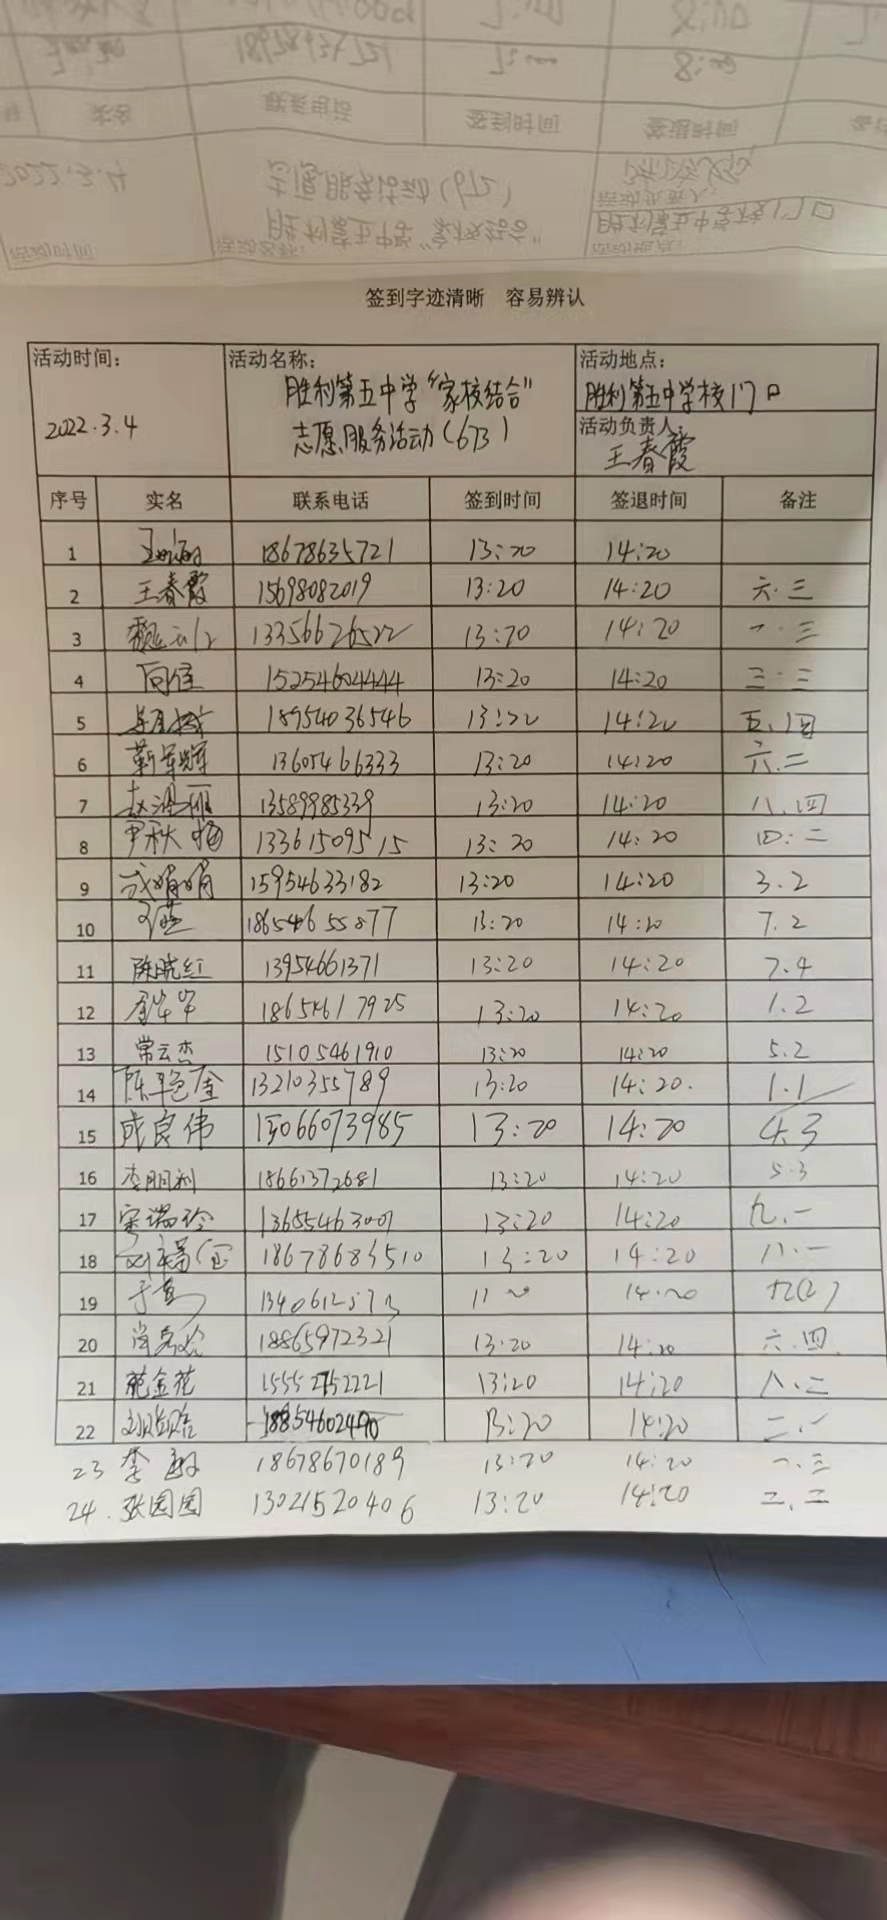 签到字迹清晰 容易辨认
活动时间: 活动名称: 活动地点:
胜利第五中学“家校结合” 胜利第五中学校门口
2022.3.4 志愿服务活动(673) 活动负责人:
王春霞
序号 实名 联系电话 签到时间 签退时间 备注
1 18678635721 13:20 14:20
2 王春霞 15698082019 13:20 14:20 六.三
3 13356626522 13:20 14:20 一.三
4 向佳 15254604444 13:20 14:20 三.三
5 18954036546 13:20 14:20 五.四
6 靳军辉 13605466333 13:20 14:20 六.二
7 赵海丽 13589985339 13:20 14:20 八.四
8 尹秋梅 13361509515 13:20 14:20 四.二
9 成娟娟 15954633182 13:20 14:20 3.2
10 18654655877 13:20 14:20 7.2
11 陈晓红 13954661371 13:20 14:20 7.4
12 18654617925 13:20 14:20 1.2
13 常云杰 15105461910 13:20 14:20 5.2
14 陈艳奎 13210355789 13:20 14:20. 1.1
15 成良伟 15066073985 13:20 14:20 4.3
16 李明利 18661372681 13:20 14:20 5.3
17 宋瑞玲 13655463001 13:20 14:20 九.一
18 18678683510 13:20 14:20 八.一
19 14:20
20 18865972321 13:20 14:20 六.四
21 苑金花 15552752221 13:20 14:20 八.二
22 18854602490 13:20 14:20 二.一
23 李 18678670189 13:20 14:20 一.三
24. 张园园 13021520406 13:20 14:20 二.二